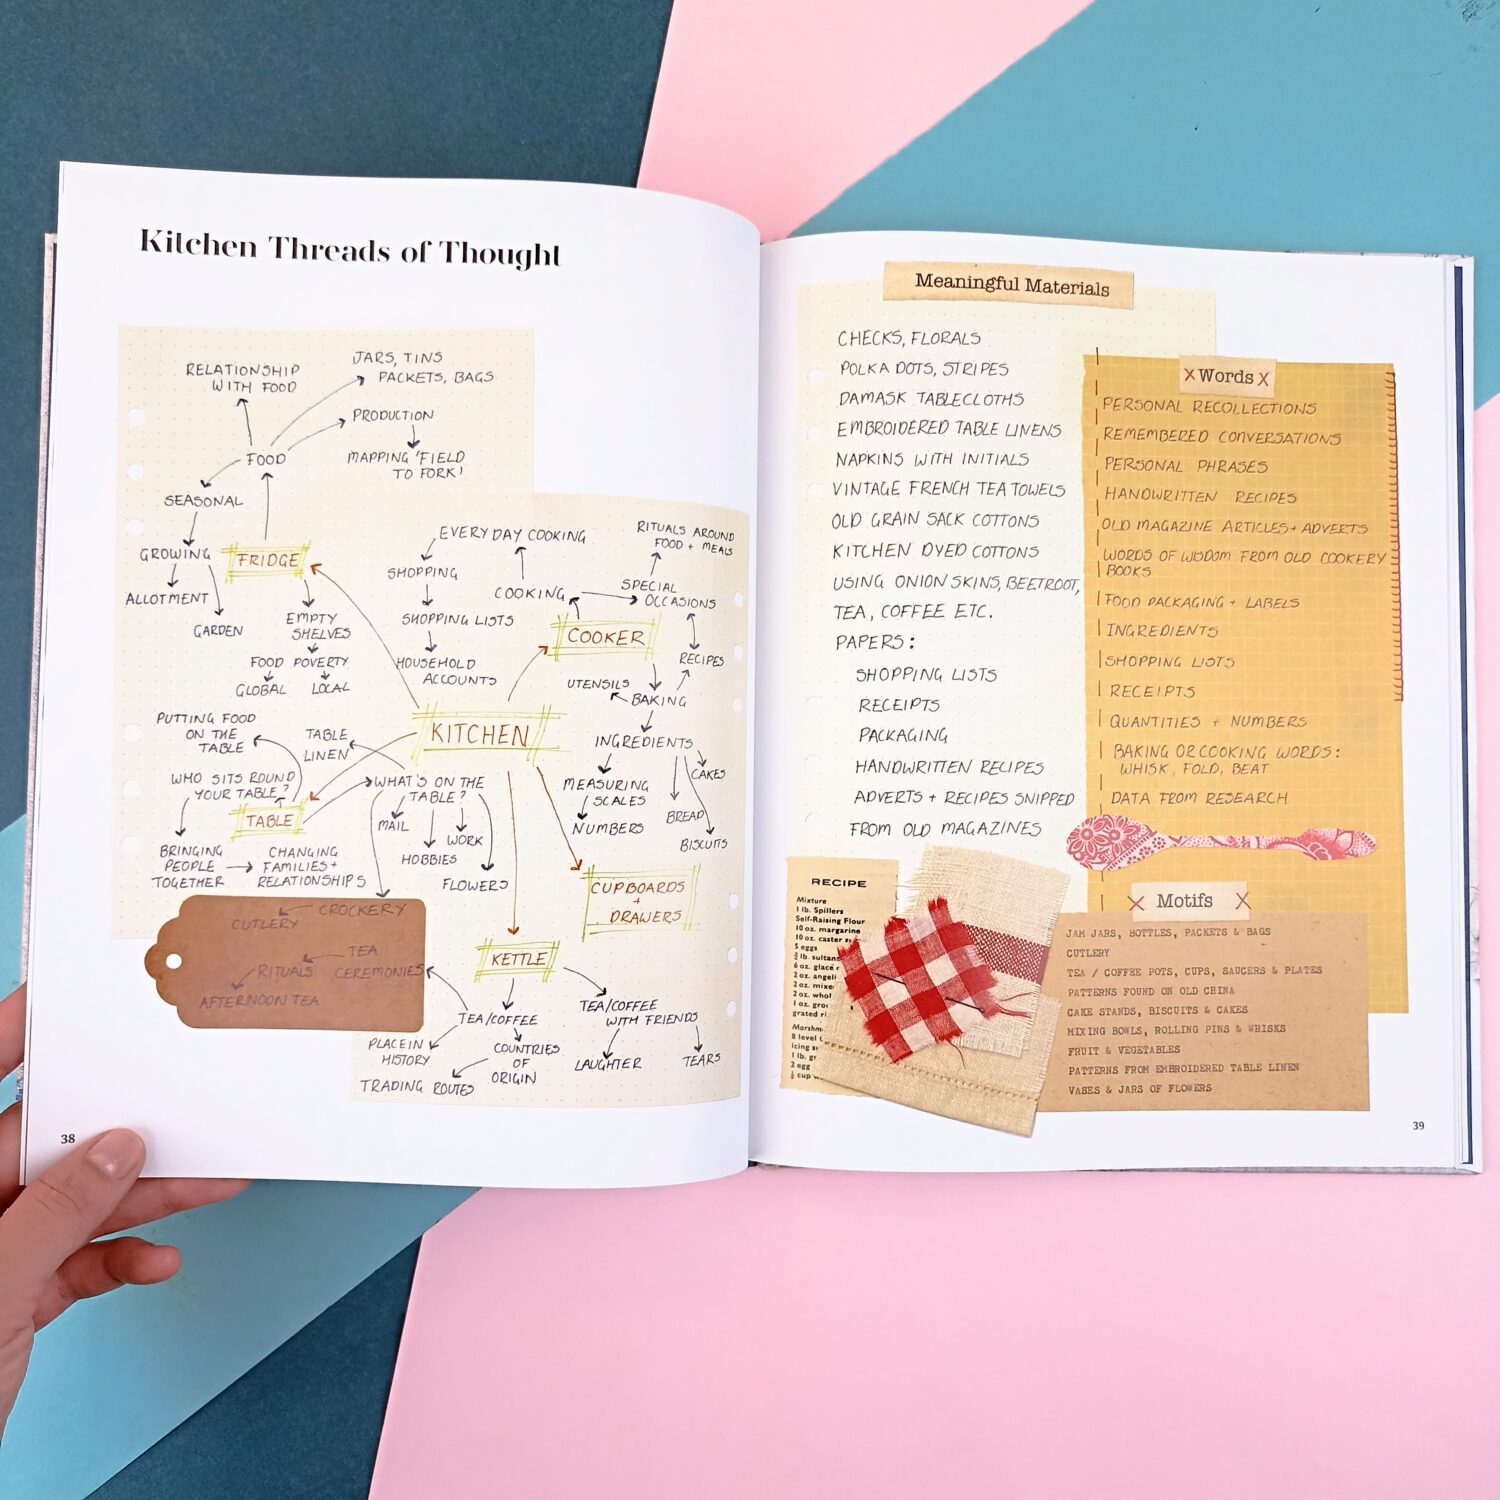 Kitchen Threads of Thought
RELATIONSHIP
WITH FOOD
JARS, TINS
PACKETS, BAGS
PRODUCTION
MAPPING 'FIELD
TO FORK'
FOOD
SEASONAL
GROWING
ALLOTMENT
GARDEN
FRIDGE
EMPTY
SHELVES
FOOD POVERTY
GLOBAL
LOCAL
EVERYDAY COOKING
SHOPPING
SHOPPING LISTS
HOUSEHOLD
ACCOUNTS
COOKING
RITUALS AROUND
FOOD + MEALS
SPECIAL
OCCASIONS
COOKER
RECIPES
UTENSILS
BAKING
INGREDIENTS
CAKES
MEASURING
SCALES
NUMBERS
BREAD
BISCUITS
KITCHEN
PUTTING FOOD
ON THE
TABLE
TABLE
LINEN
WHO SITS ROUND
YOUR TABLE?
TABLE
WHAT'S ON THE
TABLE?
MAIL
HOBBIES
WORK
FLOWERS
BRINGING
PEOPLE
TOGETHER
CHANGING
FAMILIES +
RELATIONSHIPS
CUPBOARDS
+
DRAWERS
CROCKERY
CUTLERY
TEA
CEREMONIES
RITUALS
AFTERNOON TEA
KETTLE
TEA/COFFEE
PLACE IN
HISTORY
COUNTRIES
OF
ORIGIN
TRADING ROUTES
TEA/COFFEE
WITH FRIENDS
LAUGHTER
TEARS
38
Meaningful Materials
CHECKS, FLORALS
POLKA DOTS, STRIPES
DAMASK TABLECLOTHS
EMBROIDERED TABLE LINENS
NAPKINS WITH INITIALS
VINTAGE FRENCH TEA TOWELS
OLD GRAIN SACK COTTONS
KITCHEN DYED COTTONS
USING ONION SKINS, BEETROOT,
TEA, COFFEE ETC.
PAPERS:
SHOPPING LISTS
RECEIPTS
PACKAGING
HANDWRITTEN RECIPES
ADVERTS + RECIPES SNIPPED
FROM OLD MAGAZINES
Words
PERSONAL RECOLLECTIONS
REMEMBERED CONVERSATIONS
PERSONAL PHRASES
HANDWRITTEN RECIPES
OLD MAGAZINE ARTICLES + ADVERTS
WORDS OF WISDOM FROM OLD COOKERY
BOOKS
FOOD PACKAGING + LABELS
INGREDIENTS
SHOPPING LISTS
RECEIPTS
QUANTITIES + NUMBERS
BAKING OR COOKING WORDS:
WHISK, FOLD, BEAT
DATA FROM RESEARCH
RECIPE
Mixture
1 lb. Spillers
Self-Raising Flour
10 oz. margarine
10 oz. caster
5 eggs
lb.
6 oz. glacé
2 oz.
2 oz.
2 oz.
1 oz.
grated
8 level
icing
1 lb.
2 egg
cup
Motifs
JAM JARS, BOTTLES, PACKETS & BAGS
CUTLERY
TEA / COFFEE POTS, CUPS, SAUCERS & PLATES
PATTERNS FOUND ON OLD CHINA
CAKE STANDS, BISCUITS & CAKES
MIXING BOWLS, ROLLING PINS & WHISKS
FRUIT & VEGETABLES
PATTERNS FROM EMBROIDERED TABLE LINEN
VASES & JARS OF FLOWERS
39